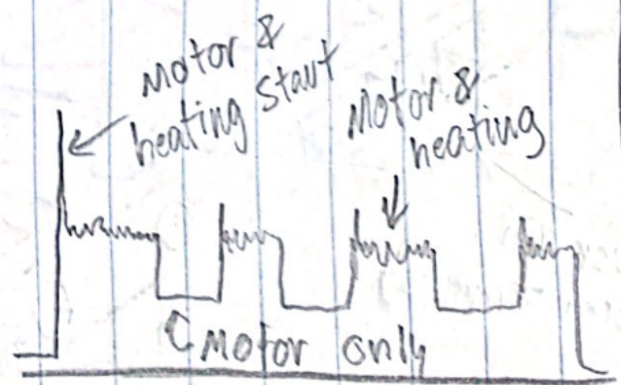 Motor &
heating start
Motor &
heating
Motor only